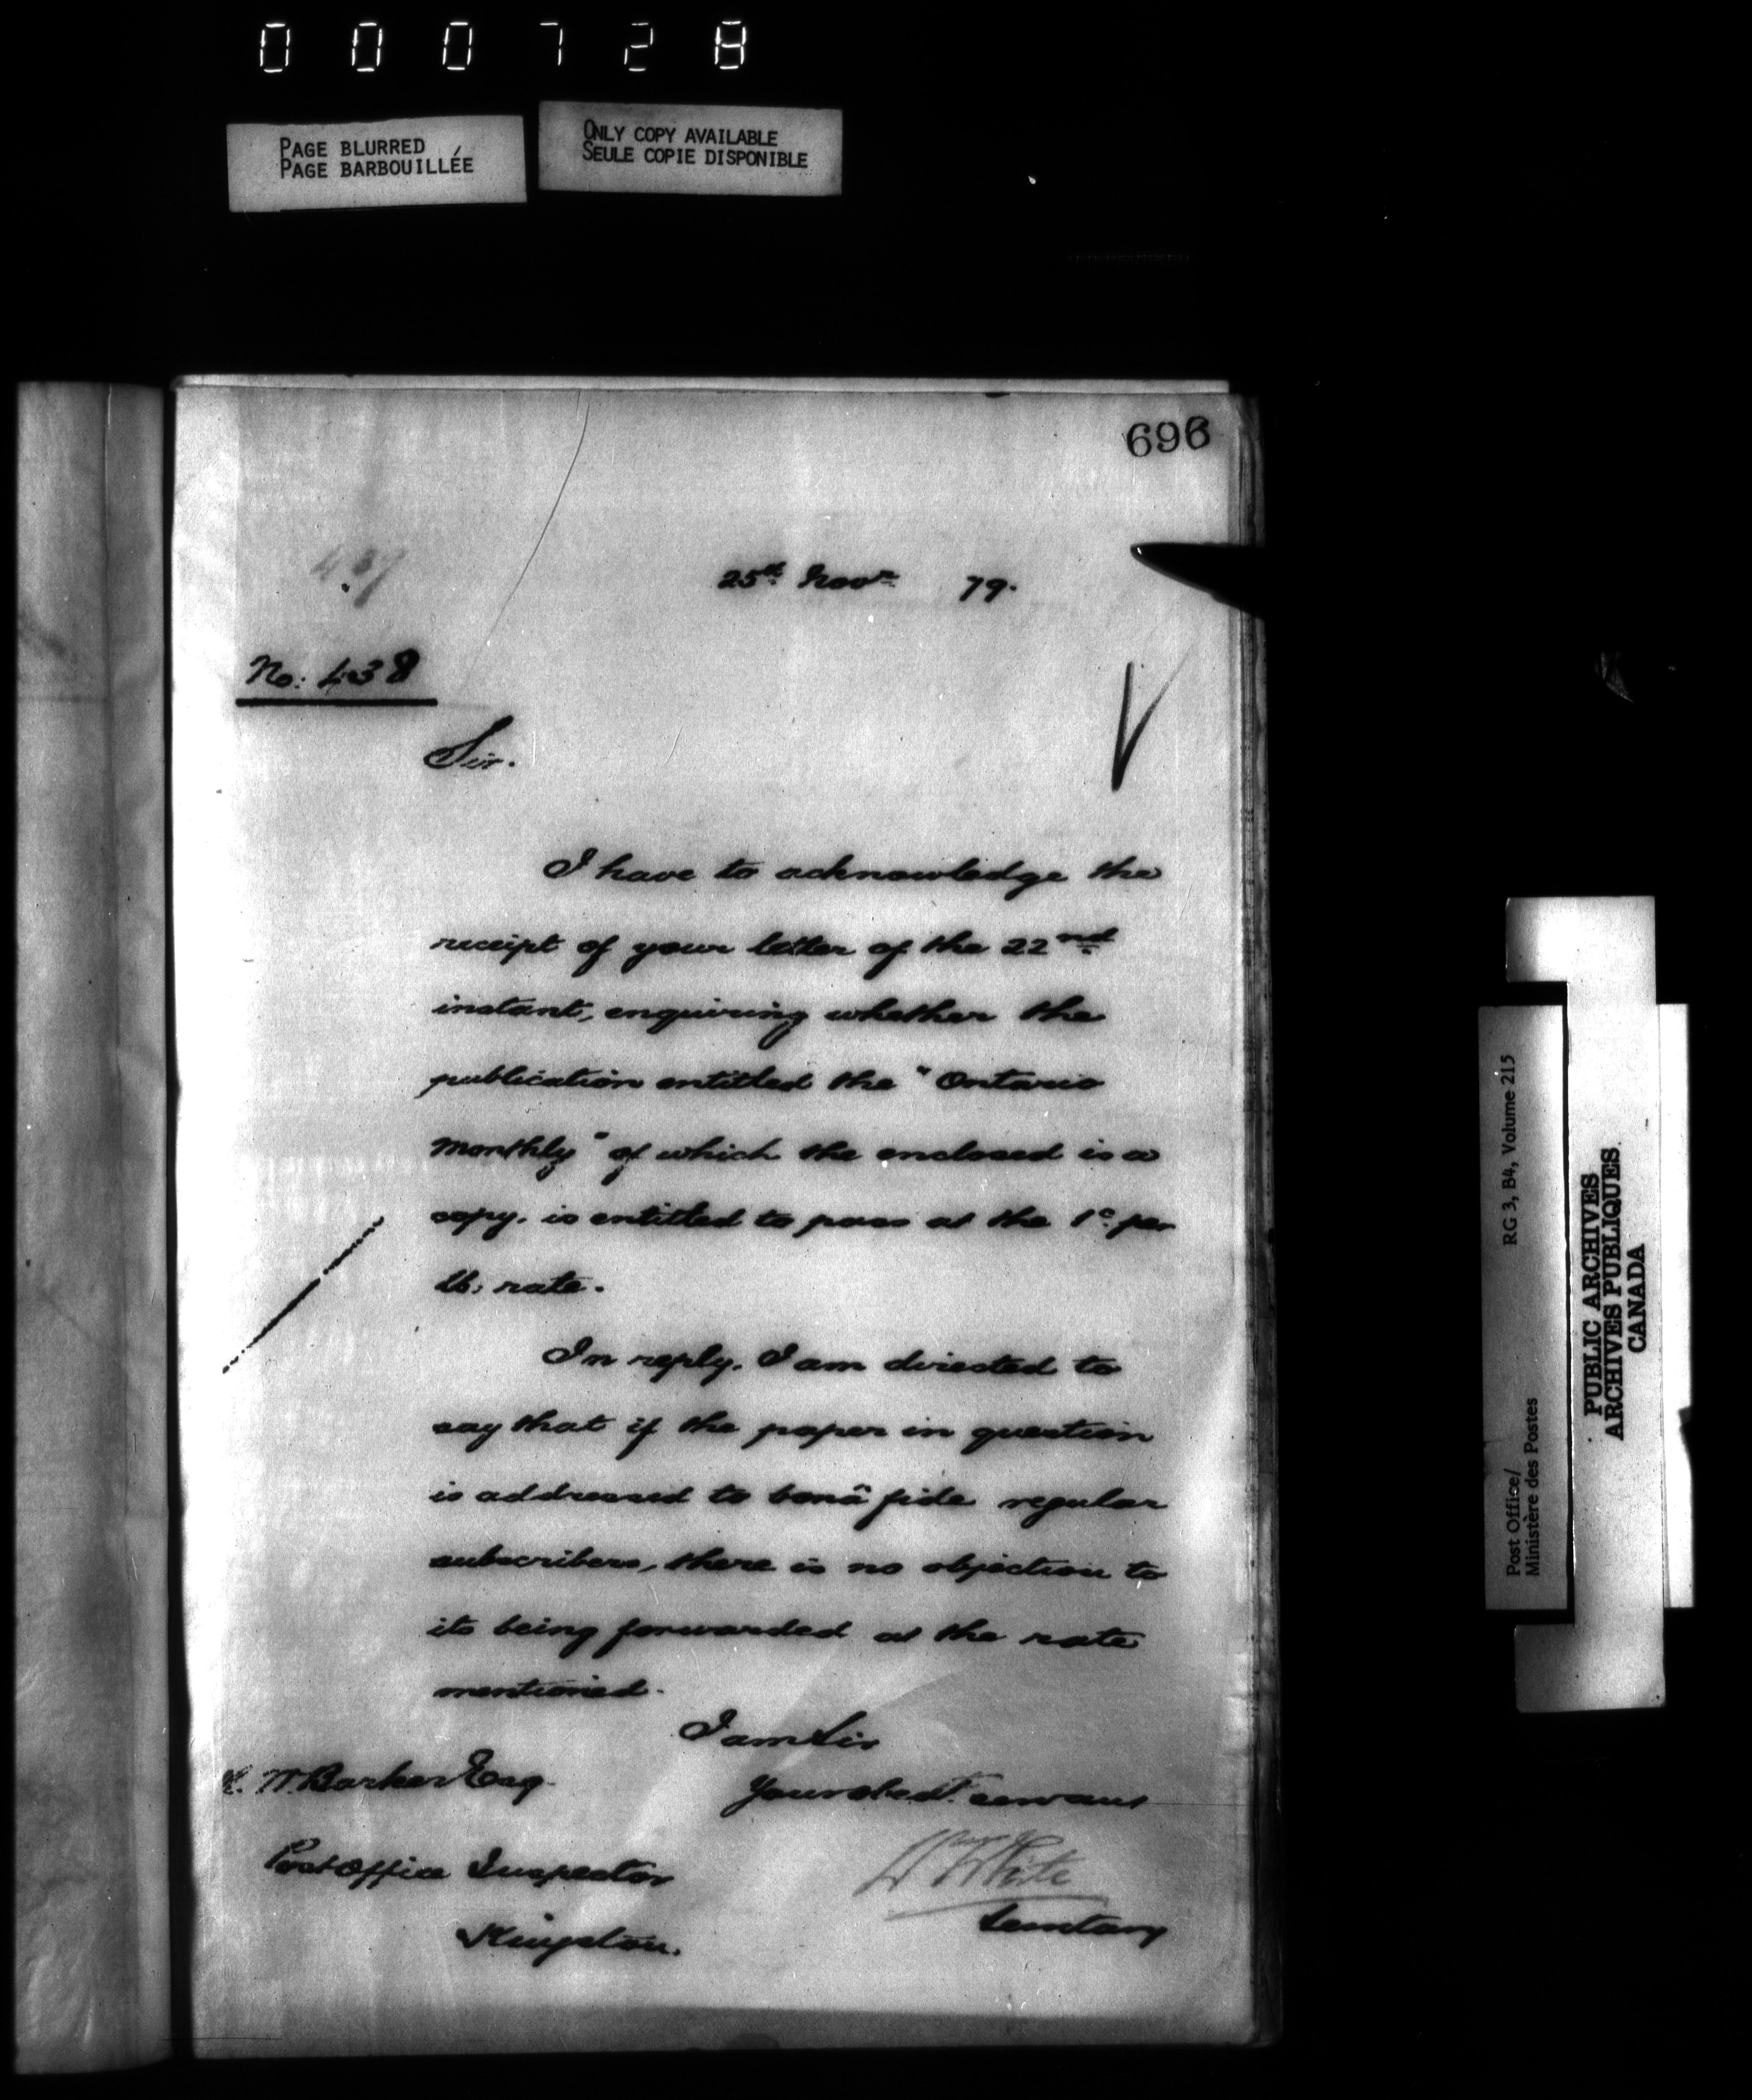 000728
PAGE BLURRED
PAGE BARBOUILLÉE
ONLY COPY AVAILABLE
SEULE COPIE DISPONIBLE
696
25th Novr 79.
437
No: 438
Sir.
I have to acknowledge the
receipt of your letter of the 22nd
instant, enquiring whether the
publication entitled the "Ontario
Monthly" of which the enclosed is a
copy, is entitled to pass at the 1c. per
lb: rate.
In reply, I am directed to
say that if the paper in question
is addressed to bonâ fide regular
subscribers, there is no objection to
its being forwarded at the rate
mentioned.
I am Sir
Your obedt. servant
W. Barker Esq.
Post Office Inspector
Kingston.
Wm White
Secretary
RG 3, B4, Volume 215
Post Office/
Ministère des Postes
PUBLIC ARCHIVES
ARCHIVES PUBLIQUES
CANADA